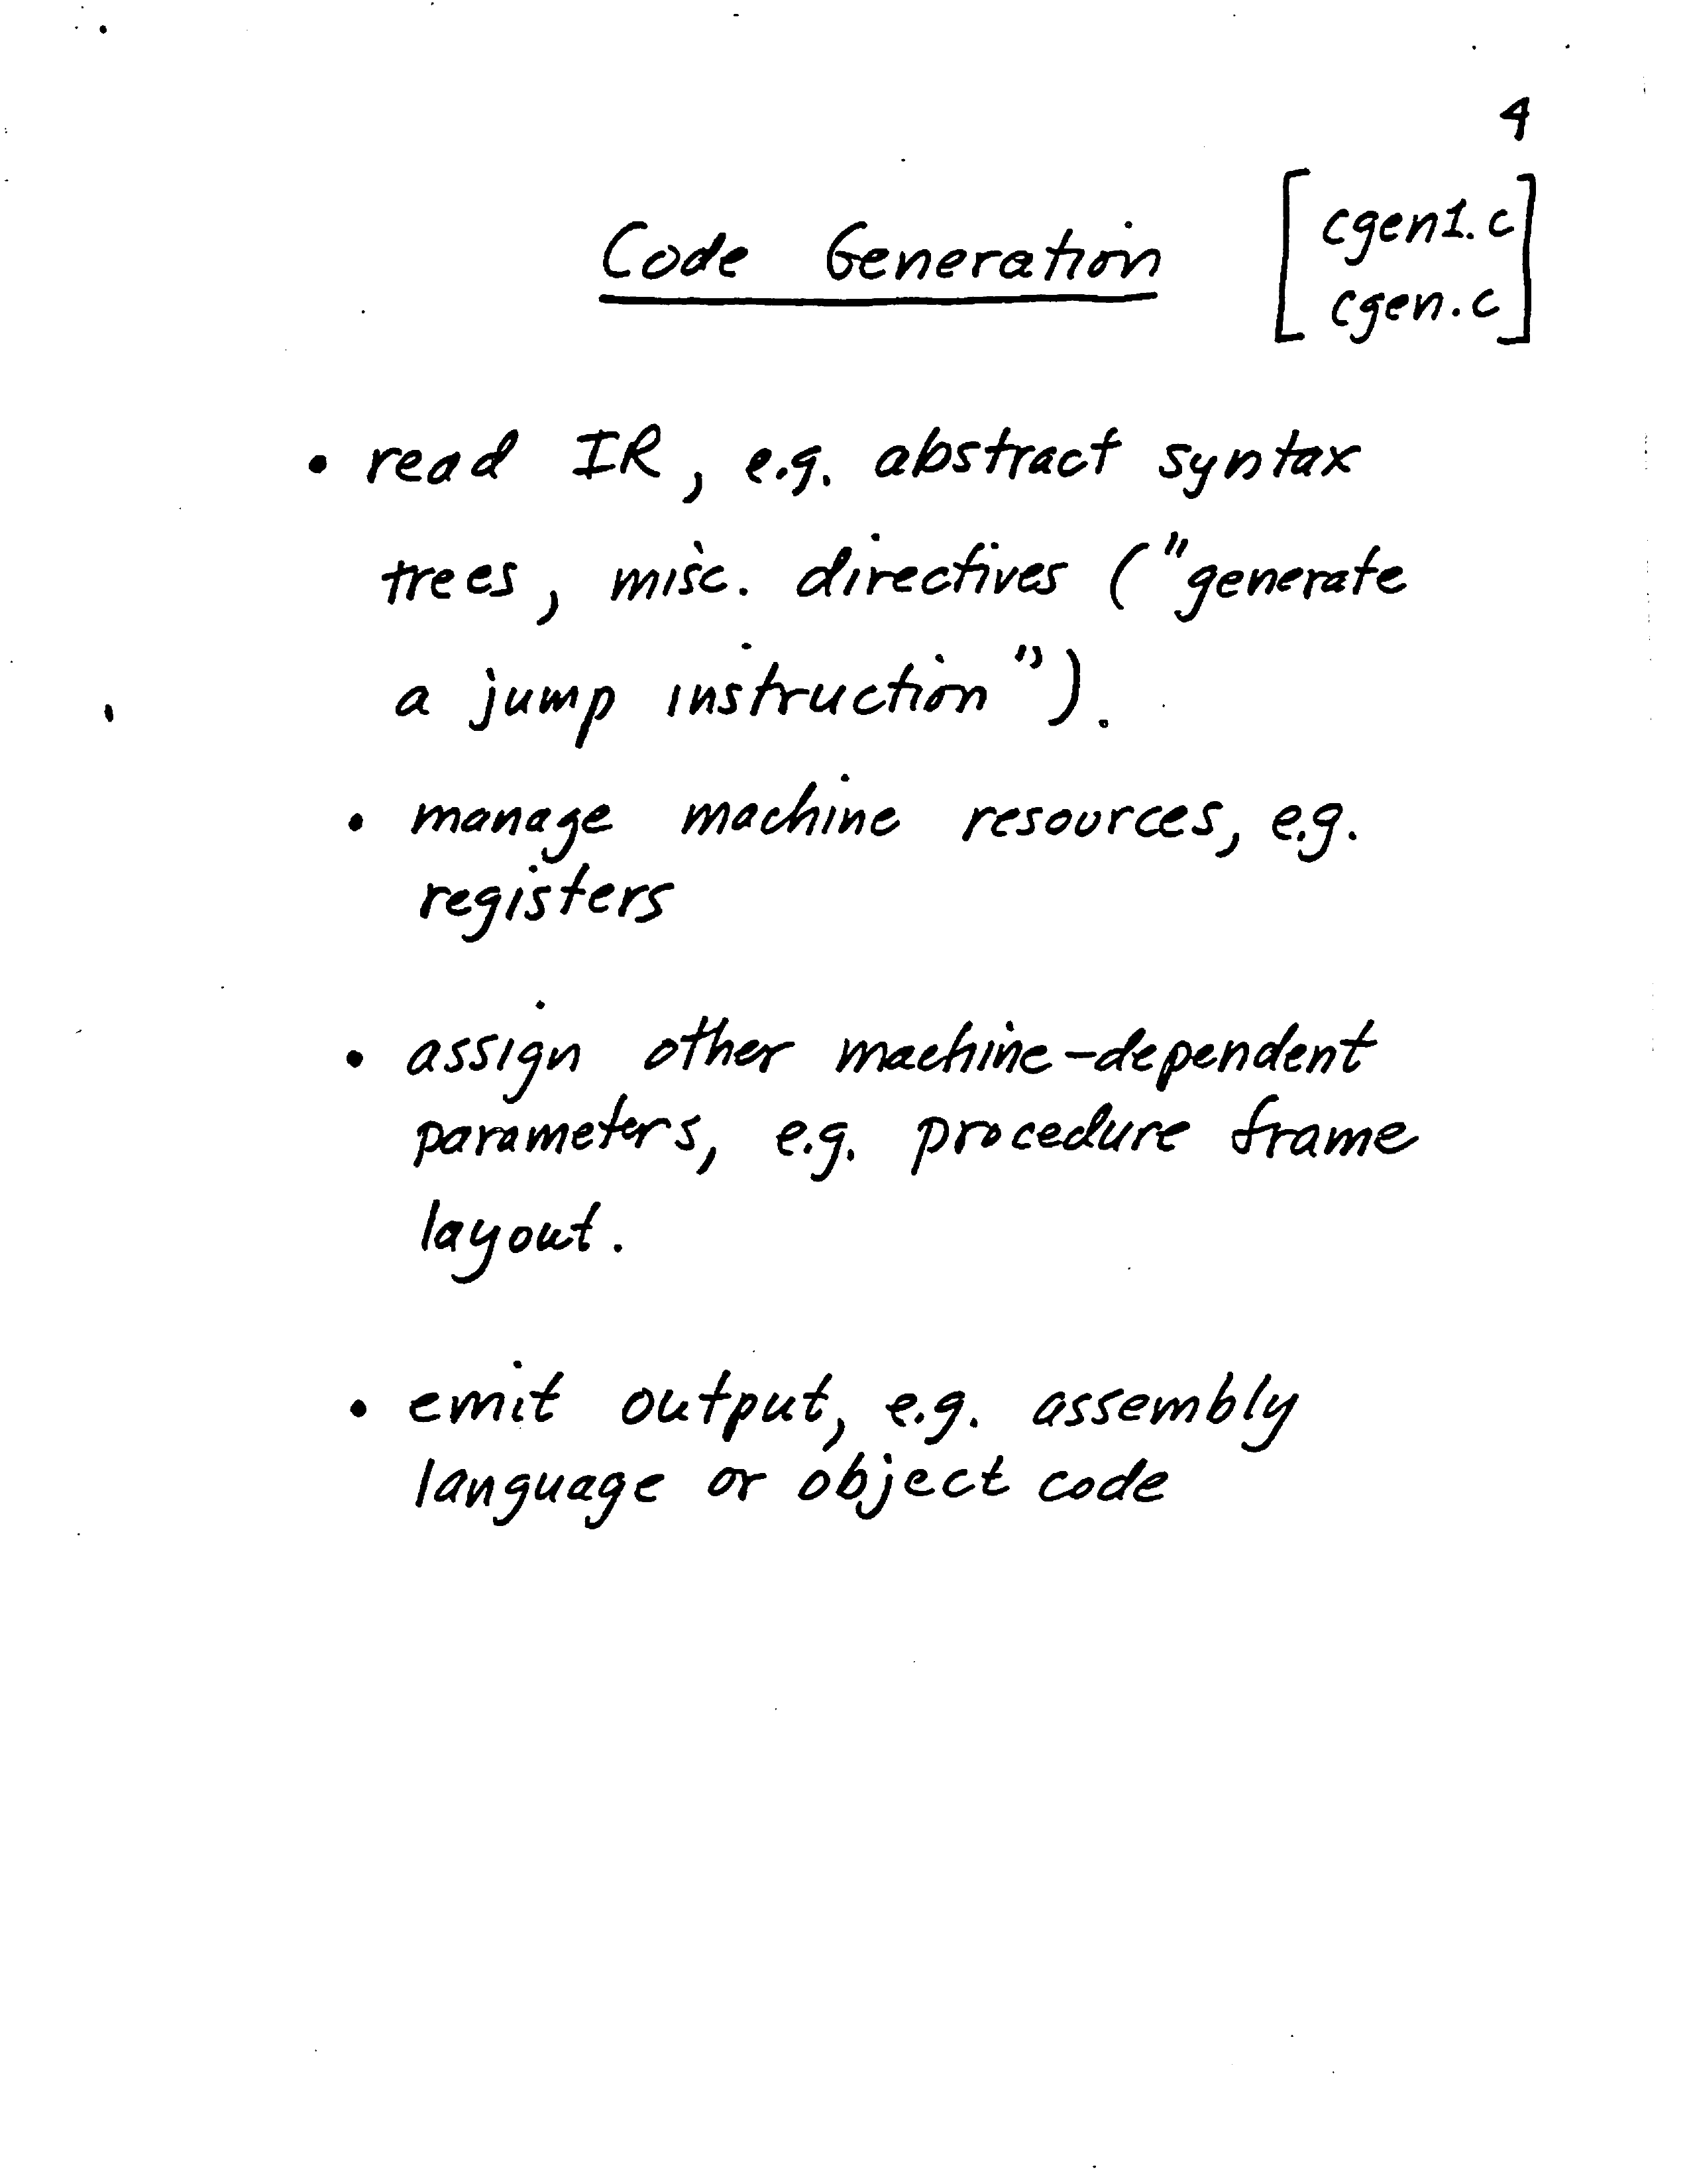 4
Code Generation
[cgen1.c
cgen.c]
• read IR, e.g. abstract syntax
trees, misc. directives ("generate
a jump instruction").
• manage machine resources, e.g.
registers
• assign other machine-dependent
parameters, e.g. procedure frame
layout.
• emit output, e.g. assembly
language or object code